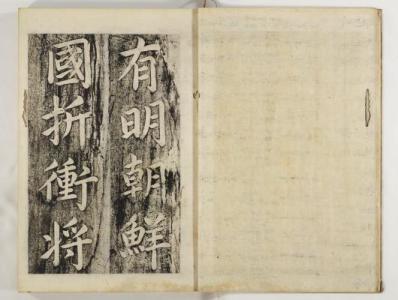 有明朝鮮
國折衝将